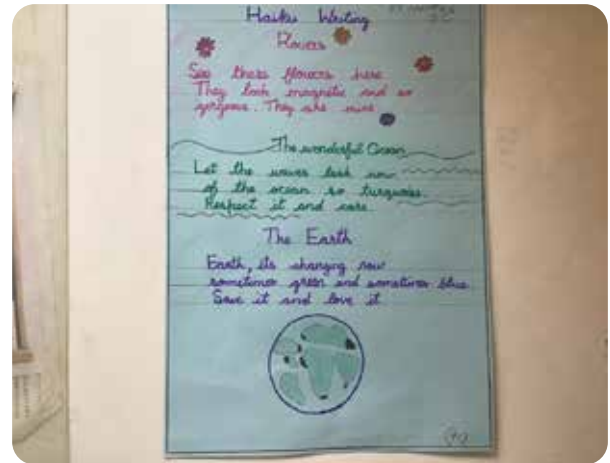 Haiku Writing
Flowers
See these flowers here
They look magnetic and so
gorgeous. They are mine
The wonderful Ocean
Let the waves
of the ocean so turquoise.
Respect it and care.
The Earth
Earth, its changing now
sometimes green and sometimes blue
Save it and love it